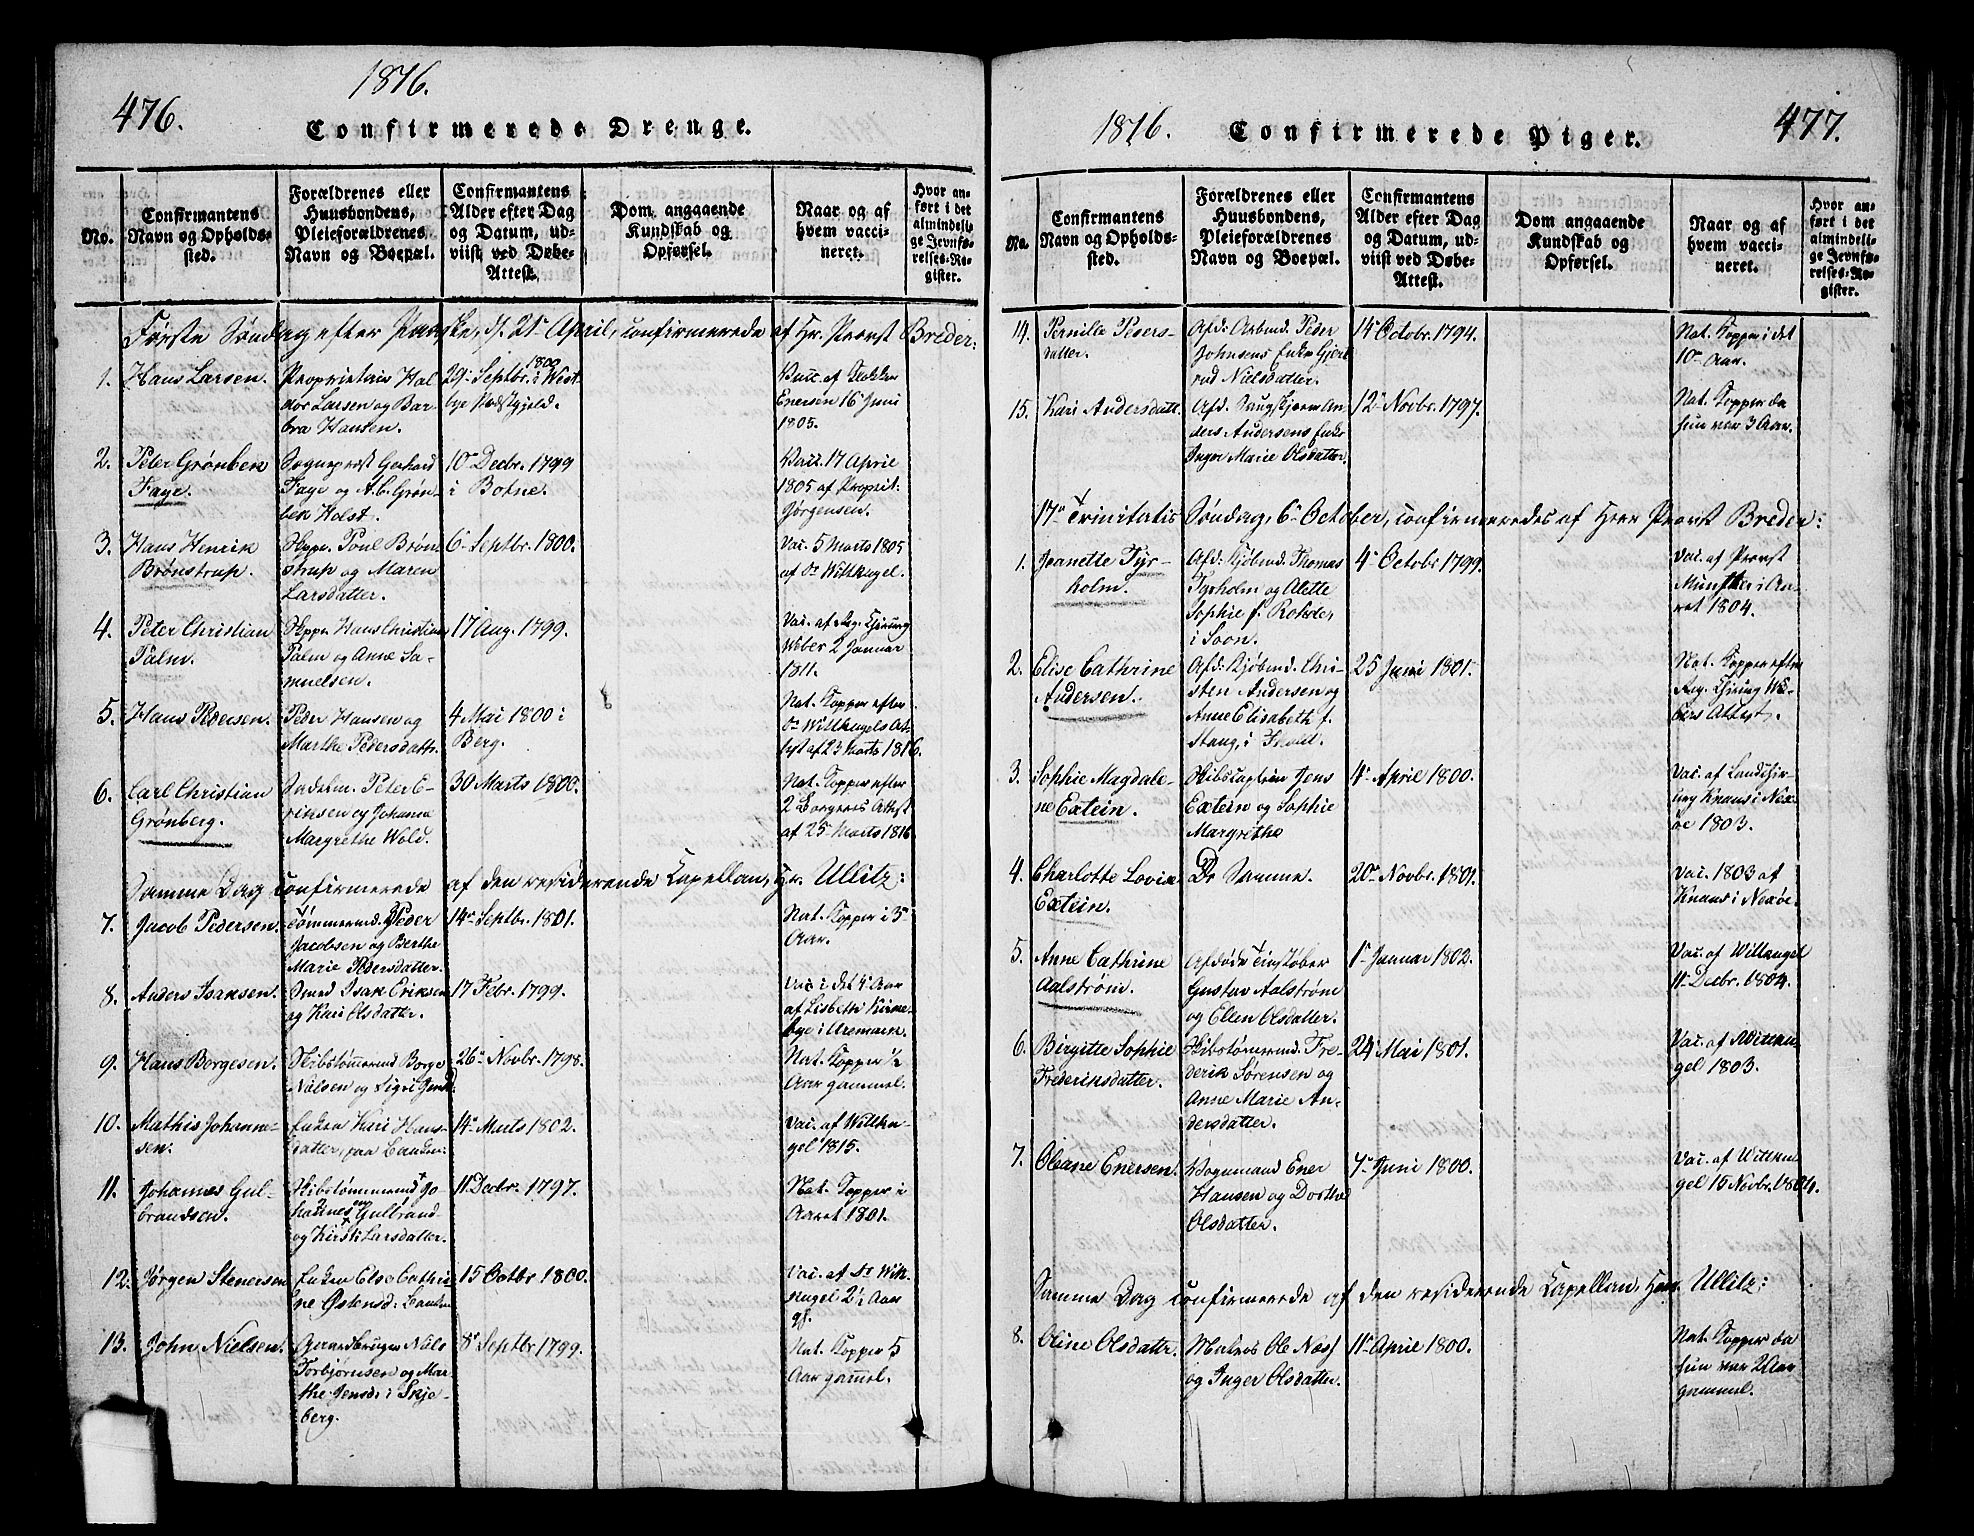 476.
1816.
Confirmerede Drenge.
No.
Confirmantens
Navn og Opholds-
sted.
Forældrenes eller
Huusbondens,
Pleieforældrenes
Navn og Boepæl.
Confirmantens
Alder efter Dag
og Datum, ud-
viist ved Døbe-
Attest.
Dom angaaende
Kundskab og
Opførsel.
Naar og af
hvem vacci-
neret.
Hvor an-
ført i det
almindeli-
ge Jevnfø-
relses-Re-
gister.
Første Søndag efter Paaske, d. 21de April, confirmerede af Hr. Provst Breder:
1.
Hans Larsen.
Proprietair Hal-
vor Larsen og Bar-
bra Hansen.
29de Septbr. 1800 i West-
bye Præstgjeld.
Vacc. af
Enersen 16de Juni
1805.
2.
Peter Grønbek
Faye.
Sognepræst Gerhard
Faye og A. C. Grøn-
bek Holst.
10de Decbr. 1799
i Botne.
Vacc. 17 April
1805 af Proprit:
Jørgensen.
3.
Hans Henrik
Brønstrup.
Skipp. Poul Brøn-
strup og Maren
Larsdatter.
6te Septbr. 1800.
Vac. 5 Marts 1805
af Dr Wittkugel.
4.
Peter Christian
Palm.
Skipp. Hans Christian
Palm og Anne Sa-
muelsen.
17 Aug. 1799.
Vac. af Reg. Chirurg
Weber 2 Januar
1811.
5.
Hans Pedersen.
Peder Hansen og
Marthe Pedersdattr.
4 Mai 1800 i
Berg.
Nat. Kopper efter
Dr Wittkugels At-
test af 23 Marts 1816.
6.
Carl Christian
Grønberg.
Peter E-
riksen og Johanne
Margrethe Wold.
30 Marts 1800.
Nat. Kopper efter
2 Borgeres Attest
af 25 Marts 1816
Samme Dag confirmerede af den residerende Capellan, Hr. Ullitz:
7.
Jacob Pedersen.
Tømmermd. Peder
Jacobsen og Berthe
Marie Pedersdatter.
14de Septbr. 1801.
Nat. Kopper i 3de
Aar.
8.
Anders Isaksen.
Smed Isak Eriksen
og Kari Olsdatter.
17 Febr. 1799.
Vac. i det 4de Aar
af Lisbeth Kirke-
bye i Aremark.
9.
Hans Borgesen.
Skibstømermd Borge
Nilsen og Sigri Jensd.
26de Novbr. 1798.
Nat. Kopper 1/2
Aar gammel.
10.
Mathis Johanne-
sen.
Enken Kari Hans-
datter, paa Banken.
14de Marts 1802.
Vac. af Wittku-
gel 1815.
11.
Johannes Gul-
brandsen.
Skibstømmermd Jo-
hannes Gulbrands
og Kirsti Larsdatter.
11te Decbr. 1797.
Nat. Kopper i
Aaret 1801.
12.
Jørgen Stenersen
Enken Else Cathri-
ne Østensd: Banken
15 Octbr 1800.
Vac. af Dr Witt-
kugel 2 1/2 Aar
gl.
13.
John Nielsen.
Gaardbruger Nils
Torbjørnsen og Mar-
the Jensdr i Skje-
berg.
8de Septbr 1799.
Nat. Kopper 5
Aar gam̄el.
1816.
Confirmerede Piger.
477.
No.
Confirmantens
Navn og Opholds-
sted.
Forældrenes eller
Huusbondens,
Pleieforældrenes
Navn og Boepæl.
Confirmantens
Alder efter Dag
og Datum, ud-
viist ved Døbe-
Attest.
Dom angaaende
Kundskab og
Opførsel.
Naar og af
hvem vacci-
neret.
Hvor an-
ført i det
almindeli-
ge Jevnfø-
relses-Re-
gister.
14.
Pernille Peters-
datter.
Afd: Arbmd. Peder
Johnsens Enke Gjert-
rud Nielsdatter.
14de Octobr. 1794.
Nat. Kopper i det
10de Aar.
15.
Kari Andersdattr.
Afd. An-
ders Andersens Enke
Inger Marie Olsdatter.
12te Novbr. 1797.
Nat. Kopper da
hun var 3 Aar.
17de Trinitatis Søndag, 6te October, confirmeredes af Herr Provst Breder:
1.
Jeanette Tyr-
holm.
Afd: Kjøbmd. Thomas
Tyrholm og Alette
Sophie f. Rohde,
i Soon.
4de Octobr 1799.
Vac. af Provst
Munthe i Aa-
ret 1804.
2.
Elise Cathrine
Andersen.
Afd: Kjøbmd. Chri-
sten Andersen og
Anne Elisabeth f.
Stang, i Fredd.
25 Juni 1801.
Nat. Kopper efter
Reg. Chirurg We-
bers Attest.
3.
Sophie Magdale-
ne Extein.
Skibscaptein Jens
Extein og Sophie
Margrethe
4de April 1800.
Vac. af Landchir-
urg Knaus i Nex-
øe 1803.
4.
Charlotte Lovise
Extein.
De Samme.
20de Novbr. 1801.
Vac. 1803 af
Knaus i Nexøe.
5.
Anne Cathrine
Aalstrøm.
Afdøde Tingstøber
Gustav Aalstrøm
og Ellen Olsdatter.
1ste Januar 1802.
Vac. af Wittkugel
11te Decbr. 1804.
6.
Birgitte Sophie
Frederiksdatter.
Skibstømermd. Fre-
derik Sørensen og
Anne Marie An-
dersdatter.
24de Mai 1801.
Vac. af Wittku-
gel 1803.
7.
Oleane Enersen.
Vognmand Ener
Hansen og Dorthe
Olsdatter.
7de Juni 1800.
Vac. af Wittku-
gel 15 Novbr. 1804.
Samme Dag confirmerede af den residerende Capellan, Herr Ullitz:
8.
Oline Olsdattr.
Matros Ole Næss
og Inger Olsdatter.
11te April 1800.
Nat. Kopper da
hun var 2 Aar
gammel.